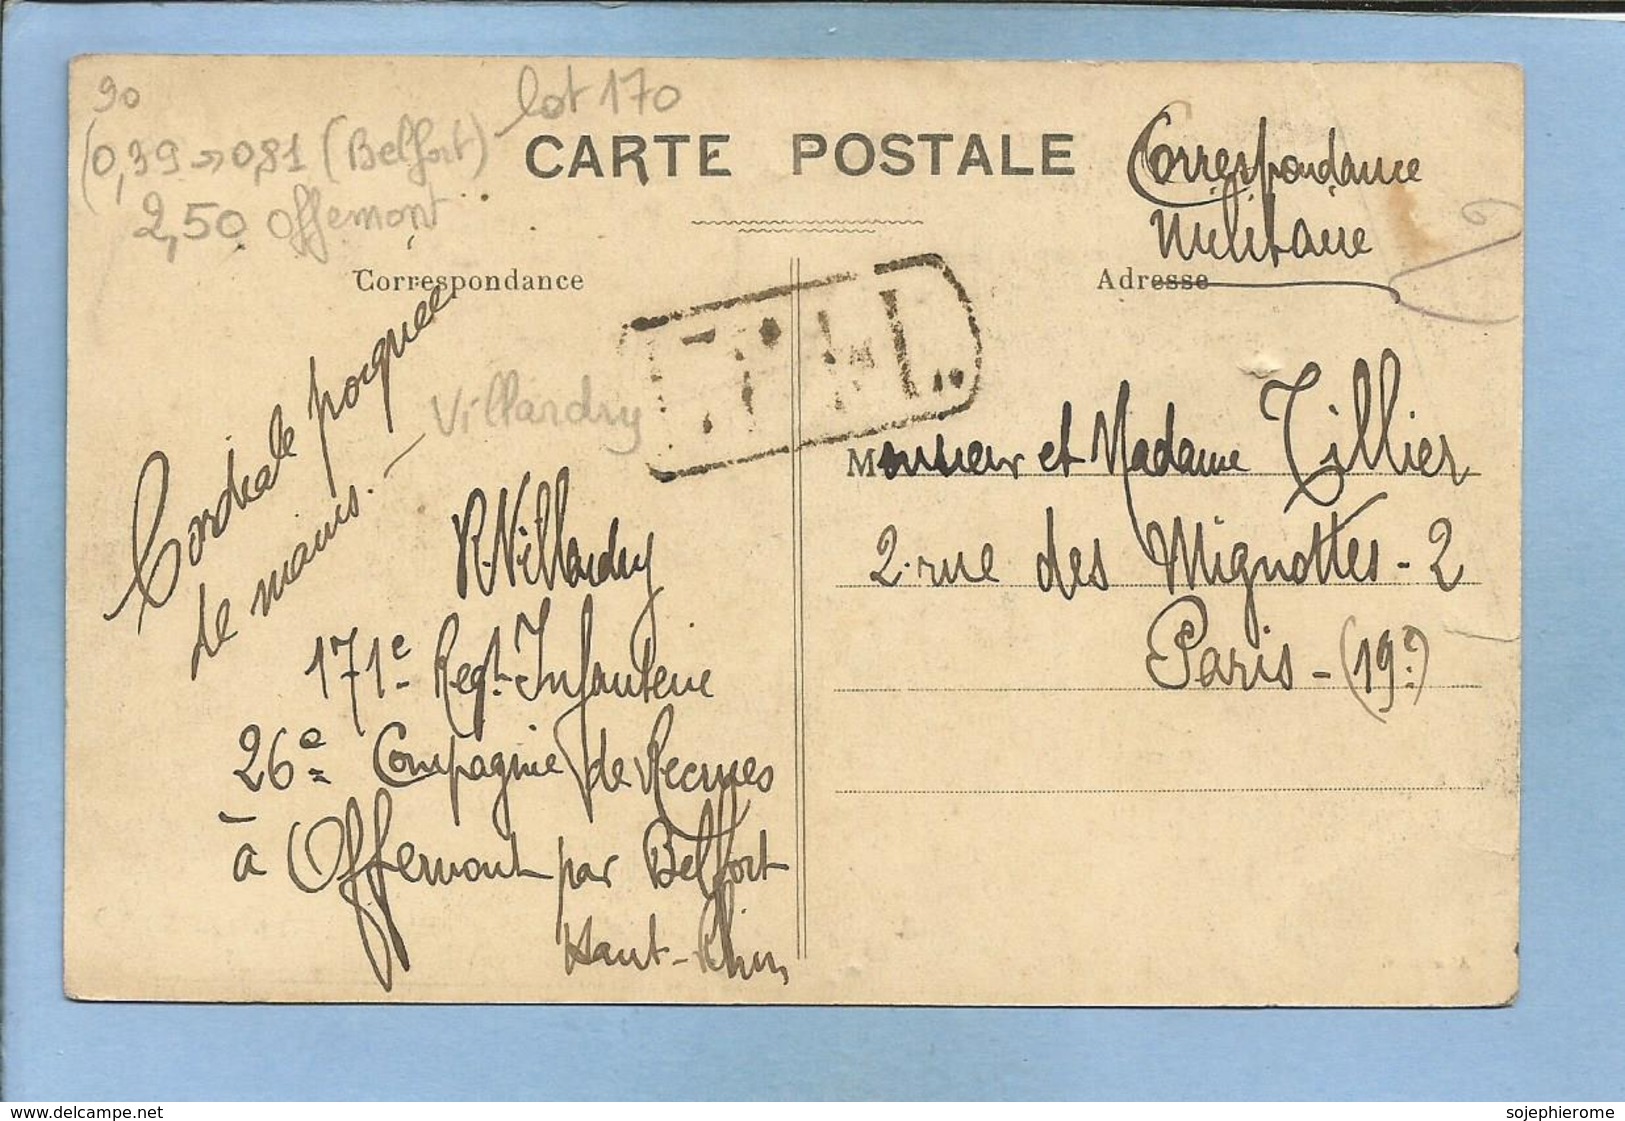 90
lot 170
(0,39 → 0,81 (Belfort)
2,50 Offemont
CARTE POSTALE
Correspondance
Militaire
Correspondance
Adresse
Cordiale poignée
de mains. —
Villardry
R. Villardry
171e Regt Infanterie
26e Compagnie de Recrues
à Offemont par Belfort
Haut-Rhin
Monsieur et Madame Tillier
2. rue des Mignottes - 2
Paris - (19e)
www.delcampe.net
sojephierome